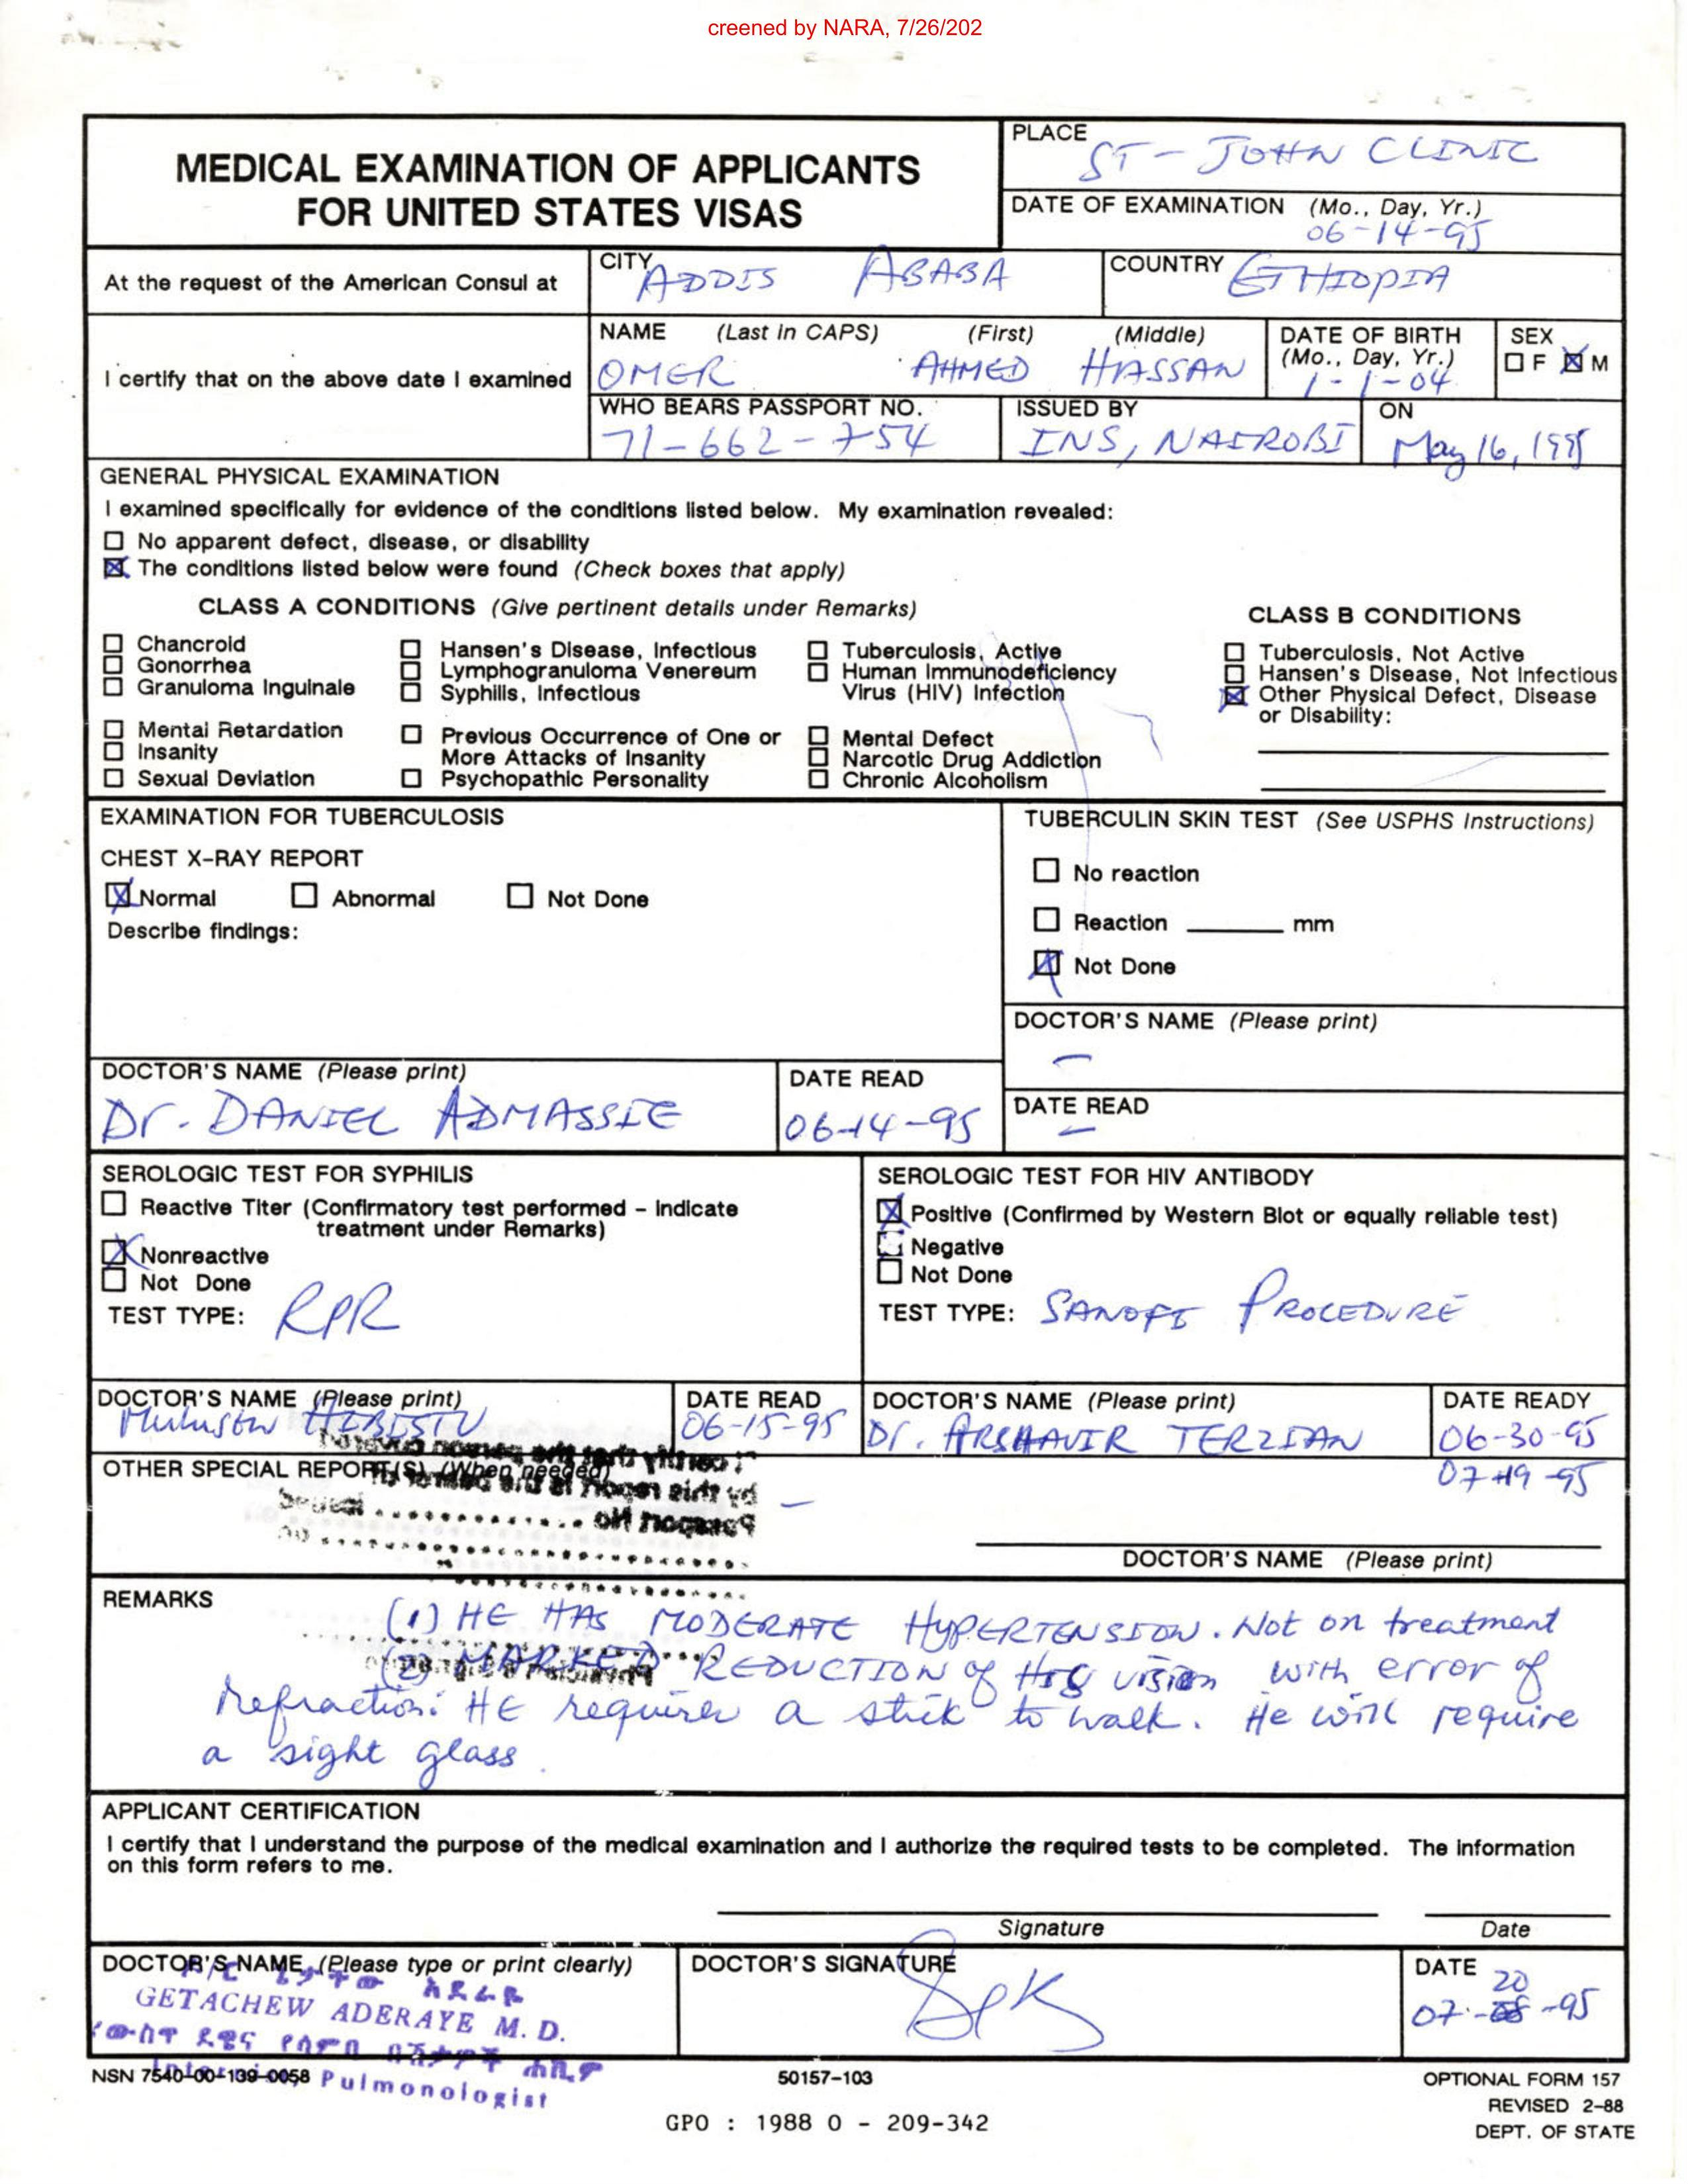 creened by NARA, 7/26/202
MEDICAL EXAMINATION OF APPLICANTS
FOR UNITED STATES VISAS
PLACE
ST - JOHN CLINIC
DATE OF EXAMINATION (Mo., Day, Yr.)
06-14-95
At the request of the American Consul at
CITY ADDIS ABABA
COUNTRY ETHIOPIA
I certify that on the above date I examined
NAME (Last in CAPS) (First) (Middle)
OMER AHMED HASSAN
DATE OF BIRTH
(Mo., Day, Yr.)
1-1-04
SEX
F M
WHO BEARS PASSPORT NO.
71-662-754
ISSUED BY
INS, NAIROBI
ON
May 16, 1995
GENERAL PHYSICAL EXAMINATION
I examined specifically for evidence of the conditions listed below. My examination revealed:
No apparent defect, disease, or disability
The conditions listed below were found (Check boxes that apply)
CLASS A CONDITIONS (Give pertinent details under Remarks)
Chancroid
Gonorrhea
Granuloma Inguinale
Hansen's Disease, Infectious
Lymphogranuloma Venereum
Syphilis, Infectious
Tuberculosis, Active
Human Immunodeficiency
Virus (HIV) Infection
Mental Retardation
Insanity
Sexual Deviation
Previous Occurrence of One or
More Attacks of Insanity
Psychopathic Personality
Mental Defect
Narcotic Drug Addiction
Chronic Alcoholism
CLASS B CONDITIONS
Tuberculosis, Not Active
Hansen's Disease, Not Infectious
Other Physical Defect, Disease
or Disability:
EXAMINATION FOR TUBERCULOSIS
CHEST X-RAY REPORT
Normal Abnormal Not Done
Describe findings:
DOCTOR'S NAME (Please print)
Dr. DANIEL ADMASSIE
DATE READ
06-14-95
TUBERCULIN SKIN TEST (See USPHS Instructions)
No reaction
Reaction mm
Not Done
DOCTOR'S NAME (Please print)
–
DATE READ
–
SEROLOGIC TEST FOR SYPHILIS
Reactive Titer (Confirmatory test performed - Indicate
treatment under Remarks)
Nonreactive
Not Done
TEST TYPE: RPR
DOCTOR'S NAME (Please print)
DATE READ
06-15-95
SEROLOGIC TEST FOR HIV ANTIBODY
Positive (Confirmed by Western Blot or equally reliable test)
Negative
Not Done
TEST TYPE: SANOFI PROCEDURE
DOCTOR'S NAME (Please print)
Dr. ARSHAVIR TERZIAN
DATE READY
06-30-95
07-19-95
OTHER SPECIAL REPORT(S) (When needed)
–
DOCTOR'S NAME (Please print)
REMARKS
(1) HE HAS MODERATE HYPERTENSION. Not on treatment
(2) MARKED REDUCTION of HIS vision with error of
Refraction: HE requires a stick to walk. He will require
a sight glass.
APPLICANT CERTIFICATION
I certify that I understand the purpose of the medical examination and I authorize the required tests to be completed. The information
on this form refers to me.
Signature Date
DOCTOR'S NAME (Please type or print clearly)
GETACHEW ADERAYE M.D.
Pulmonologist
DOCTOR'S SIGNATURE
DATE
20
07- -95
NSN 7540-00-139-0058
50157-103
GPO : 1988 O - 209-342
OPTIONAL FORM 157
REVISED 2-88
DEPT. OF STATE